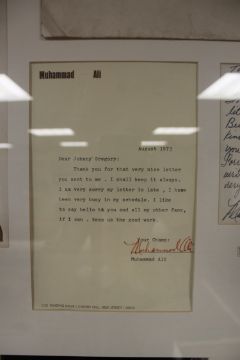 Muhammad Ali
August 1973
Dear Johnny Gregory:
Thank you for that very nice letter
you sent to me. I shall keep it always.
I am very sorry my letter is late, I have
been very busy in my schedule. I like
to say hello to you and all my other fans,
if I can. Keep up the good work.
Your Champ:
Muhammad Ali
Muhammad Ali